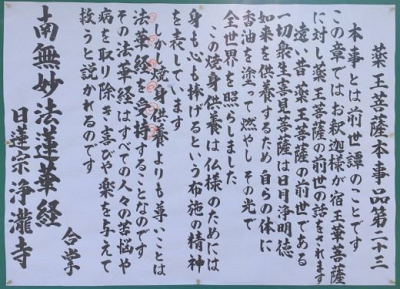 薬王菩薩本事品第二十三
本事とは前世譚のことです
この章ではお釈迦様が宿王華菩薩
に対し薬王菩薩の前世の話をされます
遠い昔薬王菩薩の前世である
一切衆生喜見菩薩は日月浄明徳
如来を供養するため自らの体に
香油を塗って燃やしその光で
全世界を照らしました
この焼身供養は仏様のためには
身も心も捧げるという布施の精神
を表しています
しかし焼身供養よりも尊いことは
法華経を受持することなのです
その法華経はすべての人々の苦悩や
病を取り除き喜びや楽を与えて
救うと説かれるのです
合掌
南無妙法蓮華経
日蓮宗浄瀧寺